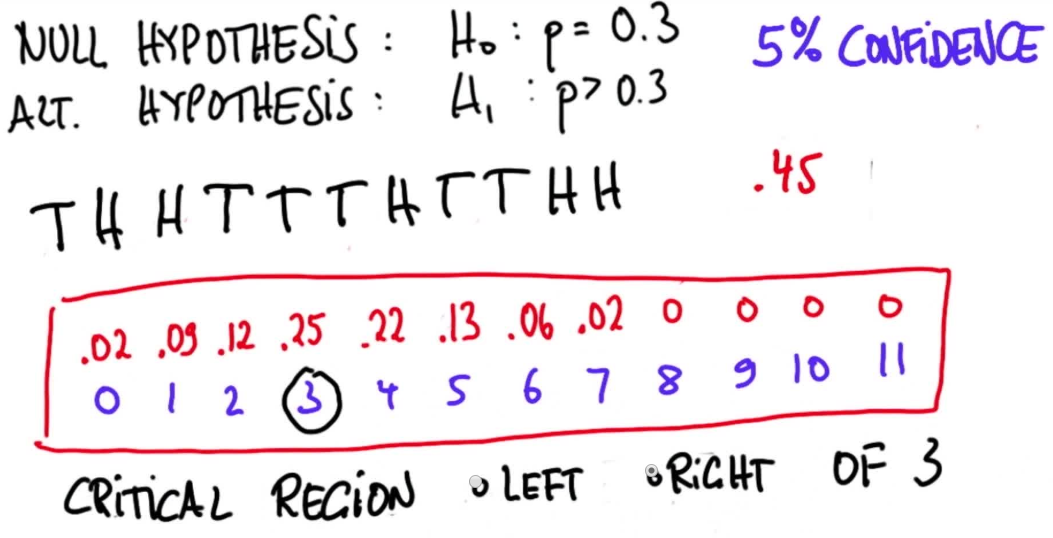 NULL HYPOTHESIS : H₀ : p = 0.3 5% CONFIDENCE
ALT. HYPOTHESIS : H₁ : p > 0.3
T H H T T T H T T H H .45
.02 .09 .12 .25 .22 .13 .06 .02 0 0 0 0
0 1 2 3 4 5 6 7 8 9 10 11
CRITICAL REGION LEFT RIGHT OF 3